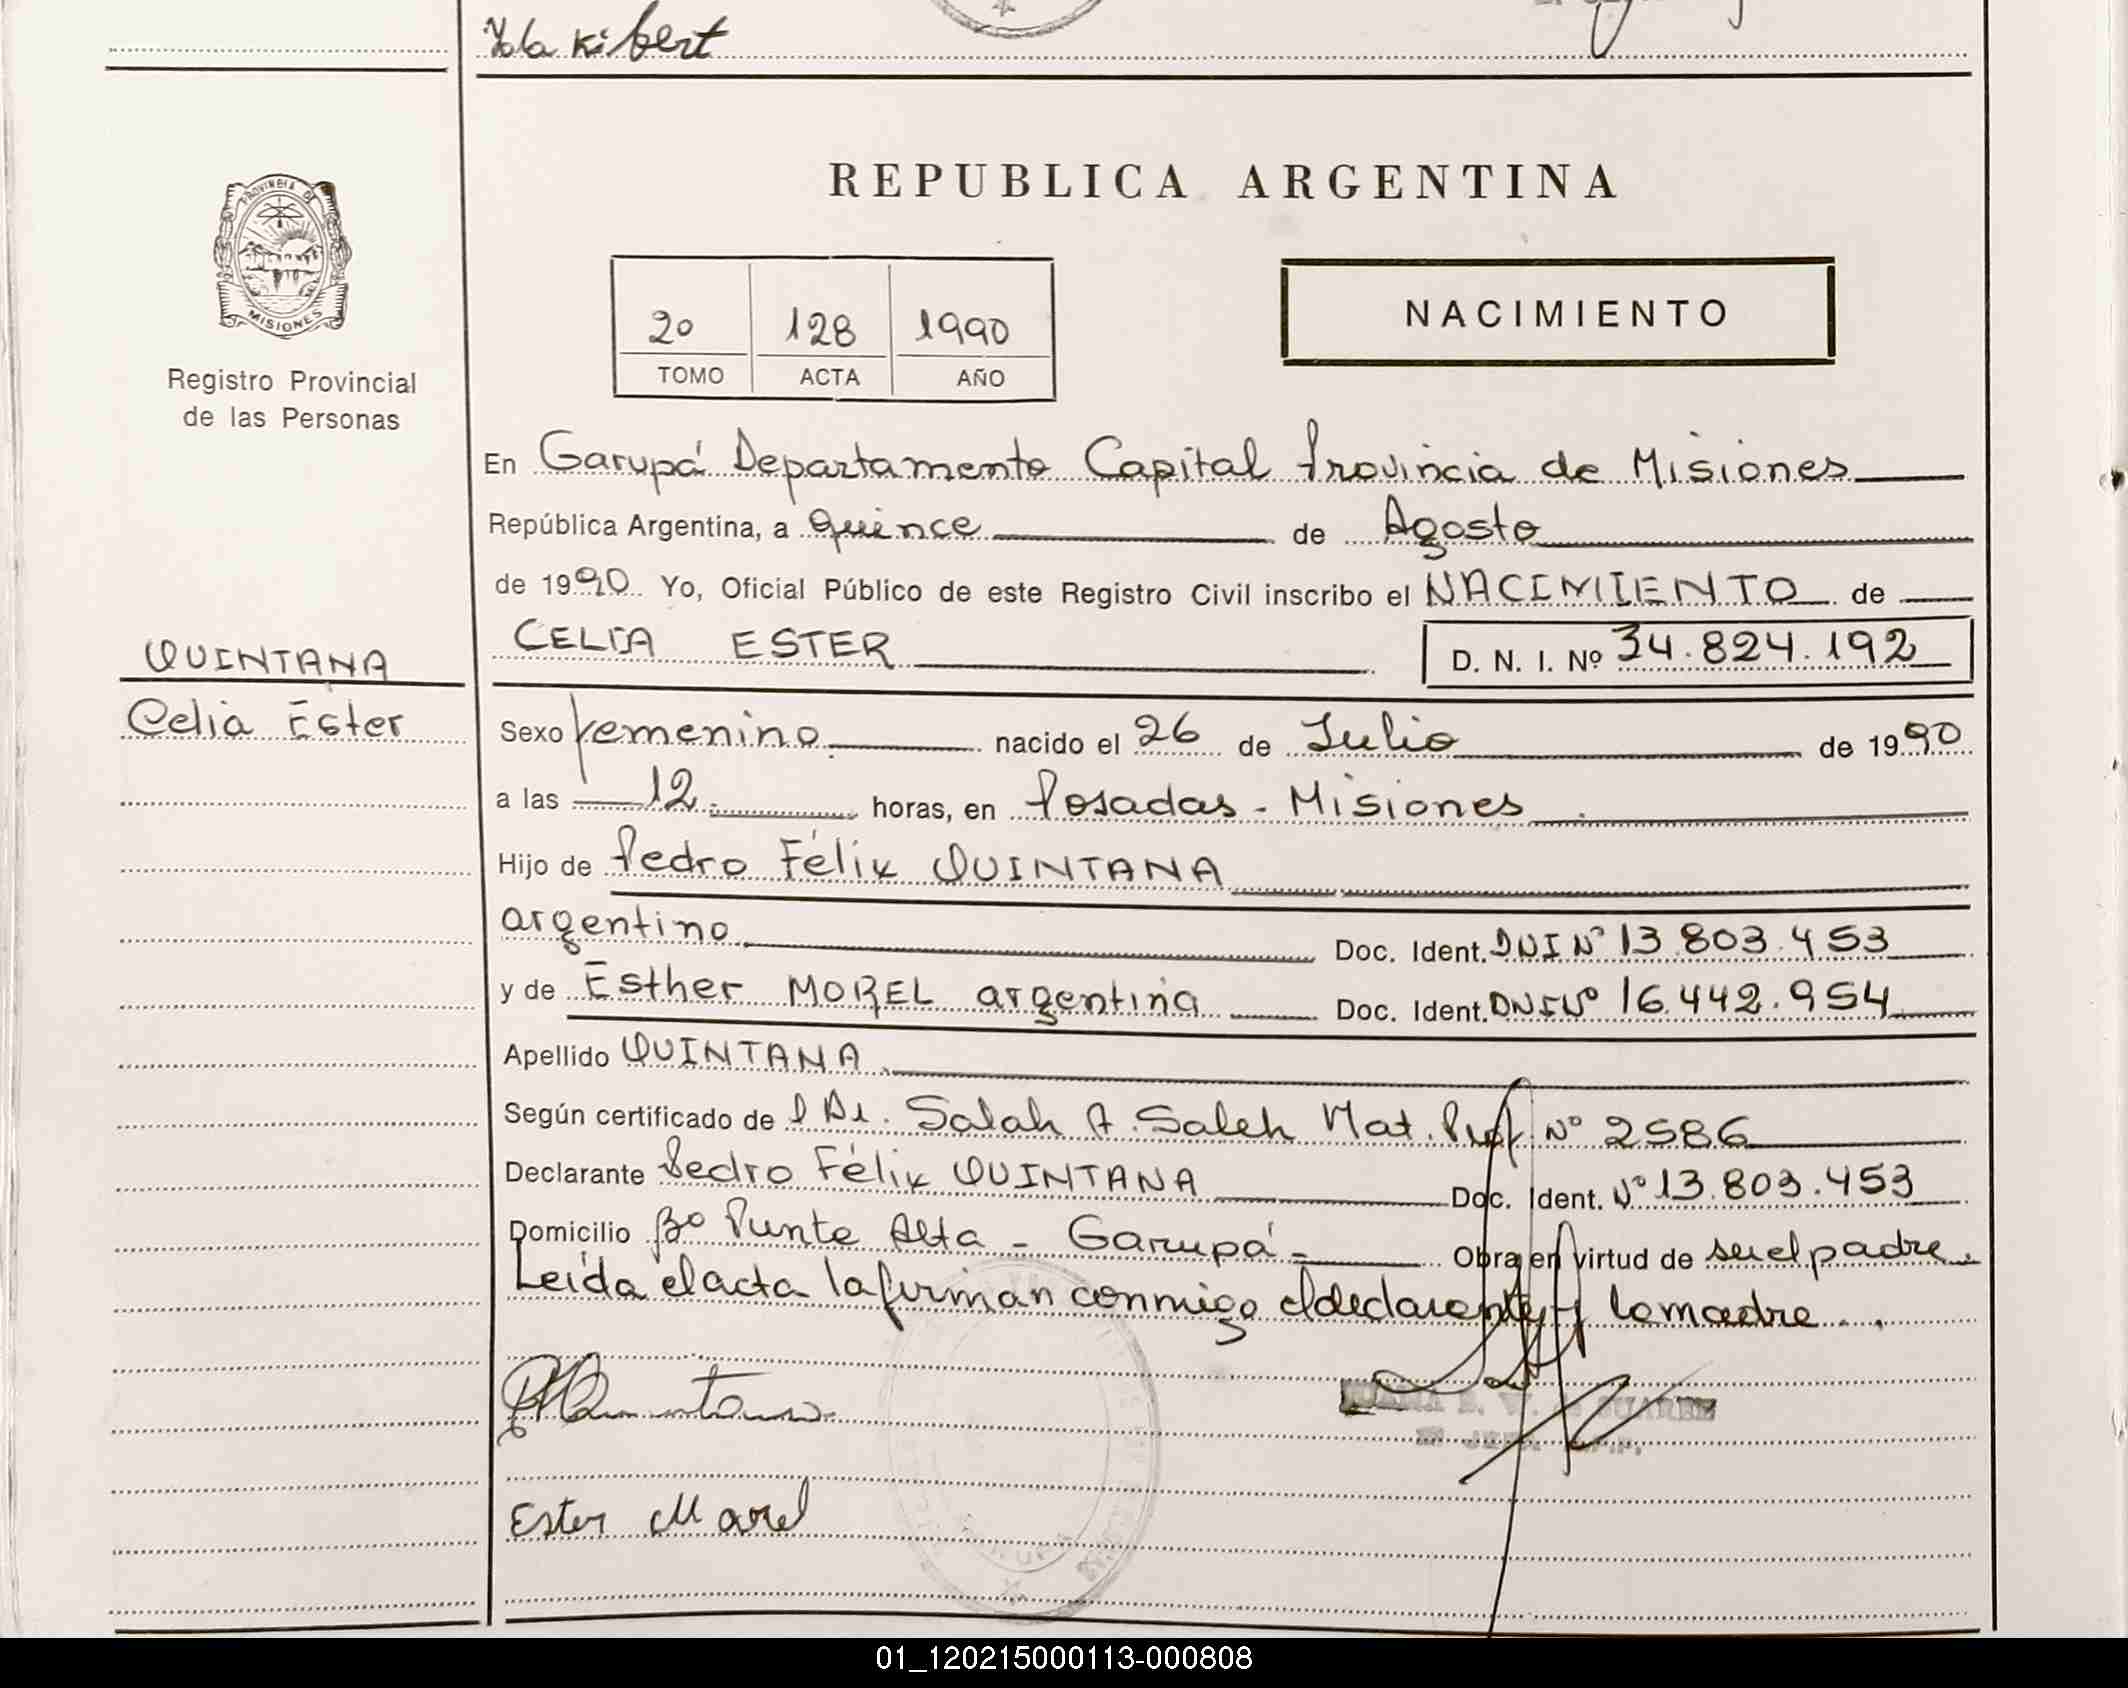 Kibert
PROVINCIA DE
MISIONES
Registro Provincial
de las Personas
REPUBLICA ARGENTINA
20 128 1990
TOMO ACTA AÑO
NACIMIENTO
En Garupá Departamento Capital Provincia de Misiones
República Argentina, a quince de Agosto
de 1990. Yo, Oficial Público de este Registro Civil inscribo el NACIMIENTO de
QUINTANA
Celia Ester
CELIA ESTER D. N. I. Nº 34.824.192
Sexo Femenino nacido el 26 de Julio de 1990
a las 12 horas, en Posadas - Misiones
Hijo de Pedro Félix QUINTANA
argentino Doc. Ident. DNI Nº 13.803.453
y de Esther MOREL argentina Doc. Ident. DNI Nº 16.442.954
Apellido QUINTANA
Según certificado de l Dr. Salah A. Saleh Mat. Prof. Nº 2586
Declarante Pedro Félix QUINTANA Doc. Ident. Nº 13.803.453
Domicilio Bº Punta Alta - Garupá - Obra en virtud de ser el padre.
Leída el acta la firman conmigo el declarante y la madre..
Ester Morel
01_120215000113-000808